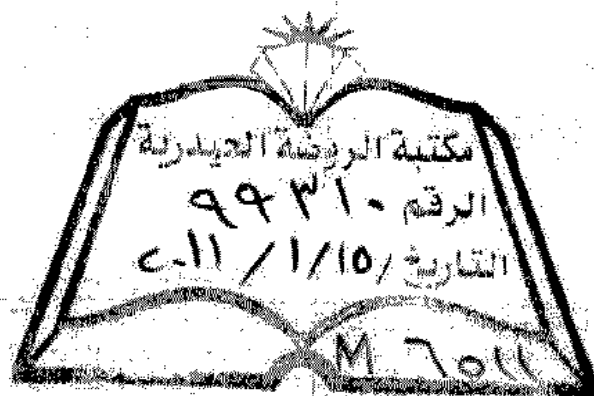 مكتبة الروضة الحيدرية
الرقم ٩٩٣١٠
التاريخ /١٥/ ١ / ٢٠١١
M ٦٥١١